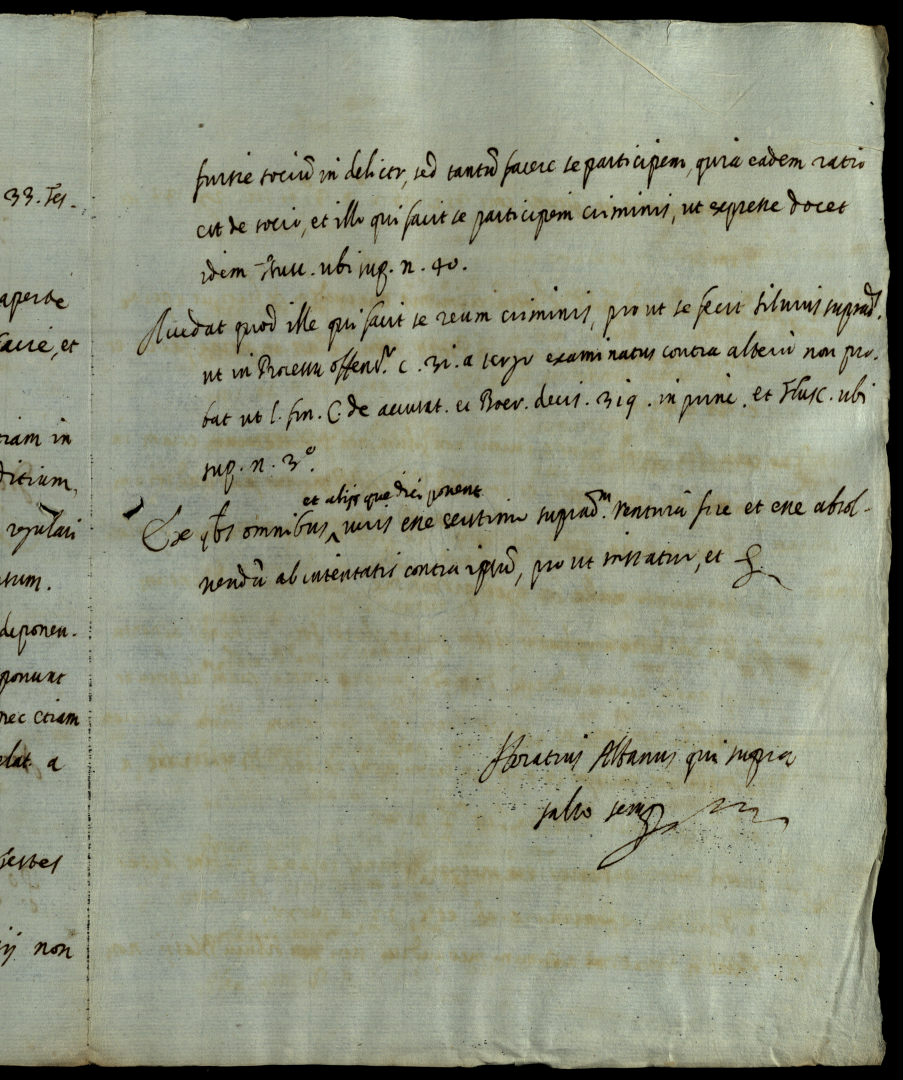 33. Tes.
aperte
facie, et
etiam in
ditium,
regulari
deponen.
ponunt
nec etiam
a
testes
ij non
fuisse sociũ in delicto, sed tantũ facere se participem, quia eadem ratio
est de socio, et illo qui facit se participem criminis, ut expresse docet
idem Fusc. ubi sup. n. 40.
Accedat quod ille qui facit se reum criminis, prout se fecit Silvius suprad.
ut in Processu offens. c. 31. a tergo examinatus contra alterũ non pro-
bat ut l. fin. C. de accusat. et Boer. decis. 319. in princ. et Fusc. ubi
sup. n. 3º.
et alijs que dici ponent
Ex qbs omnibus, viris esse suprad.m Venturã fore et esse absol-
vendũ ab intentatis contra ipsũ, prout instatur, et
Horatius Albanus qui supra
salvo semp